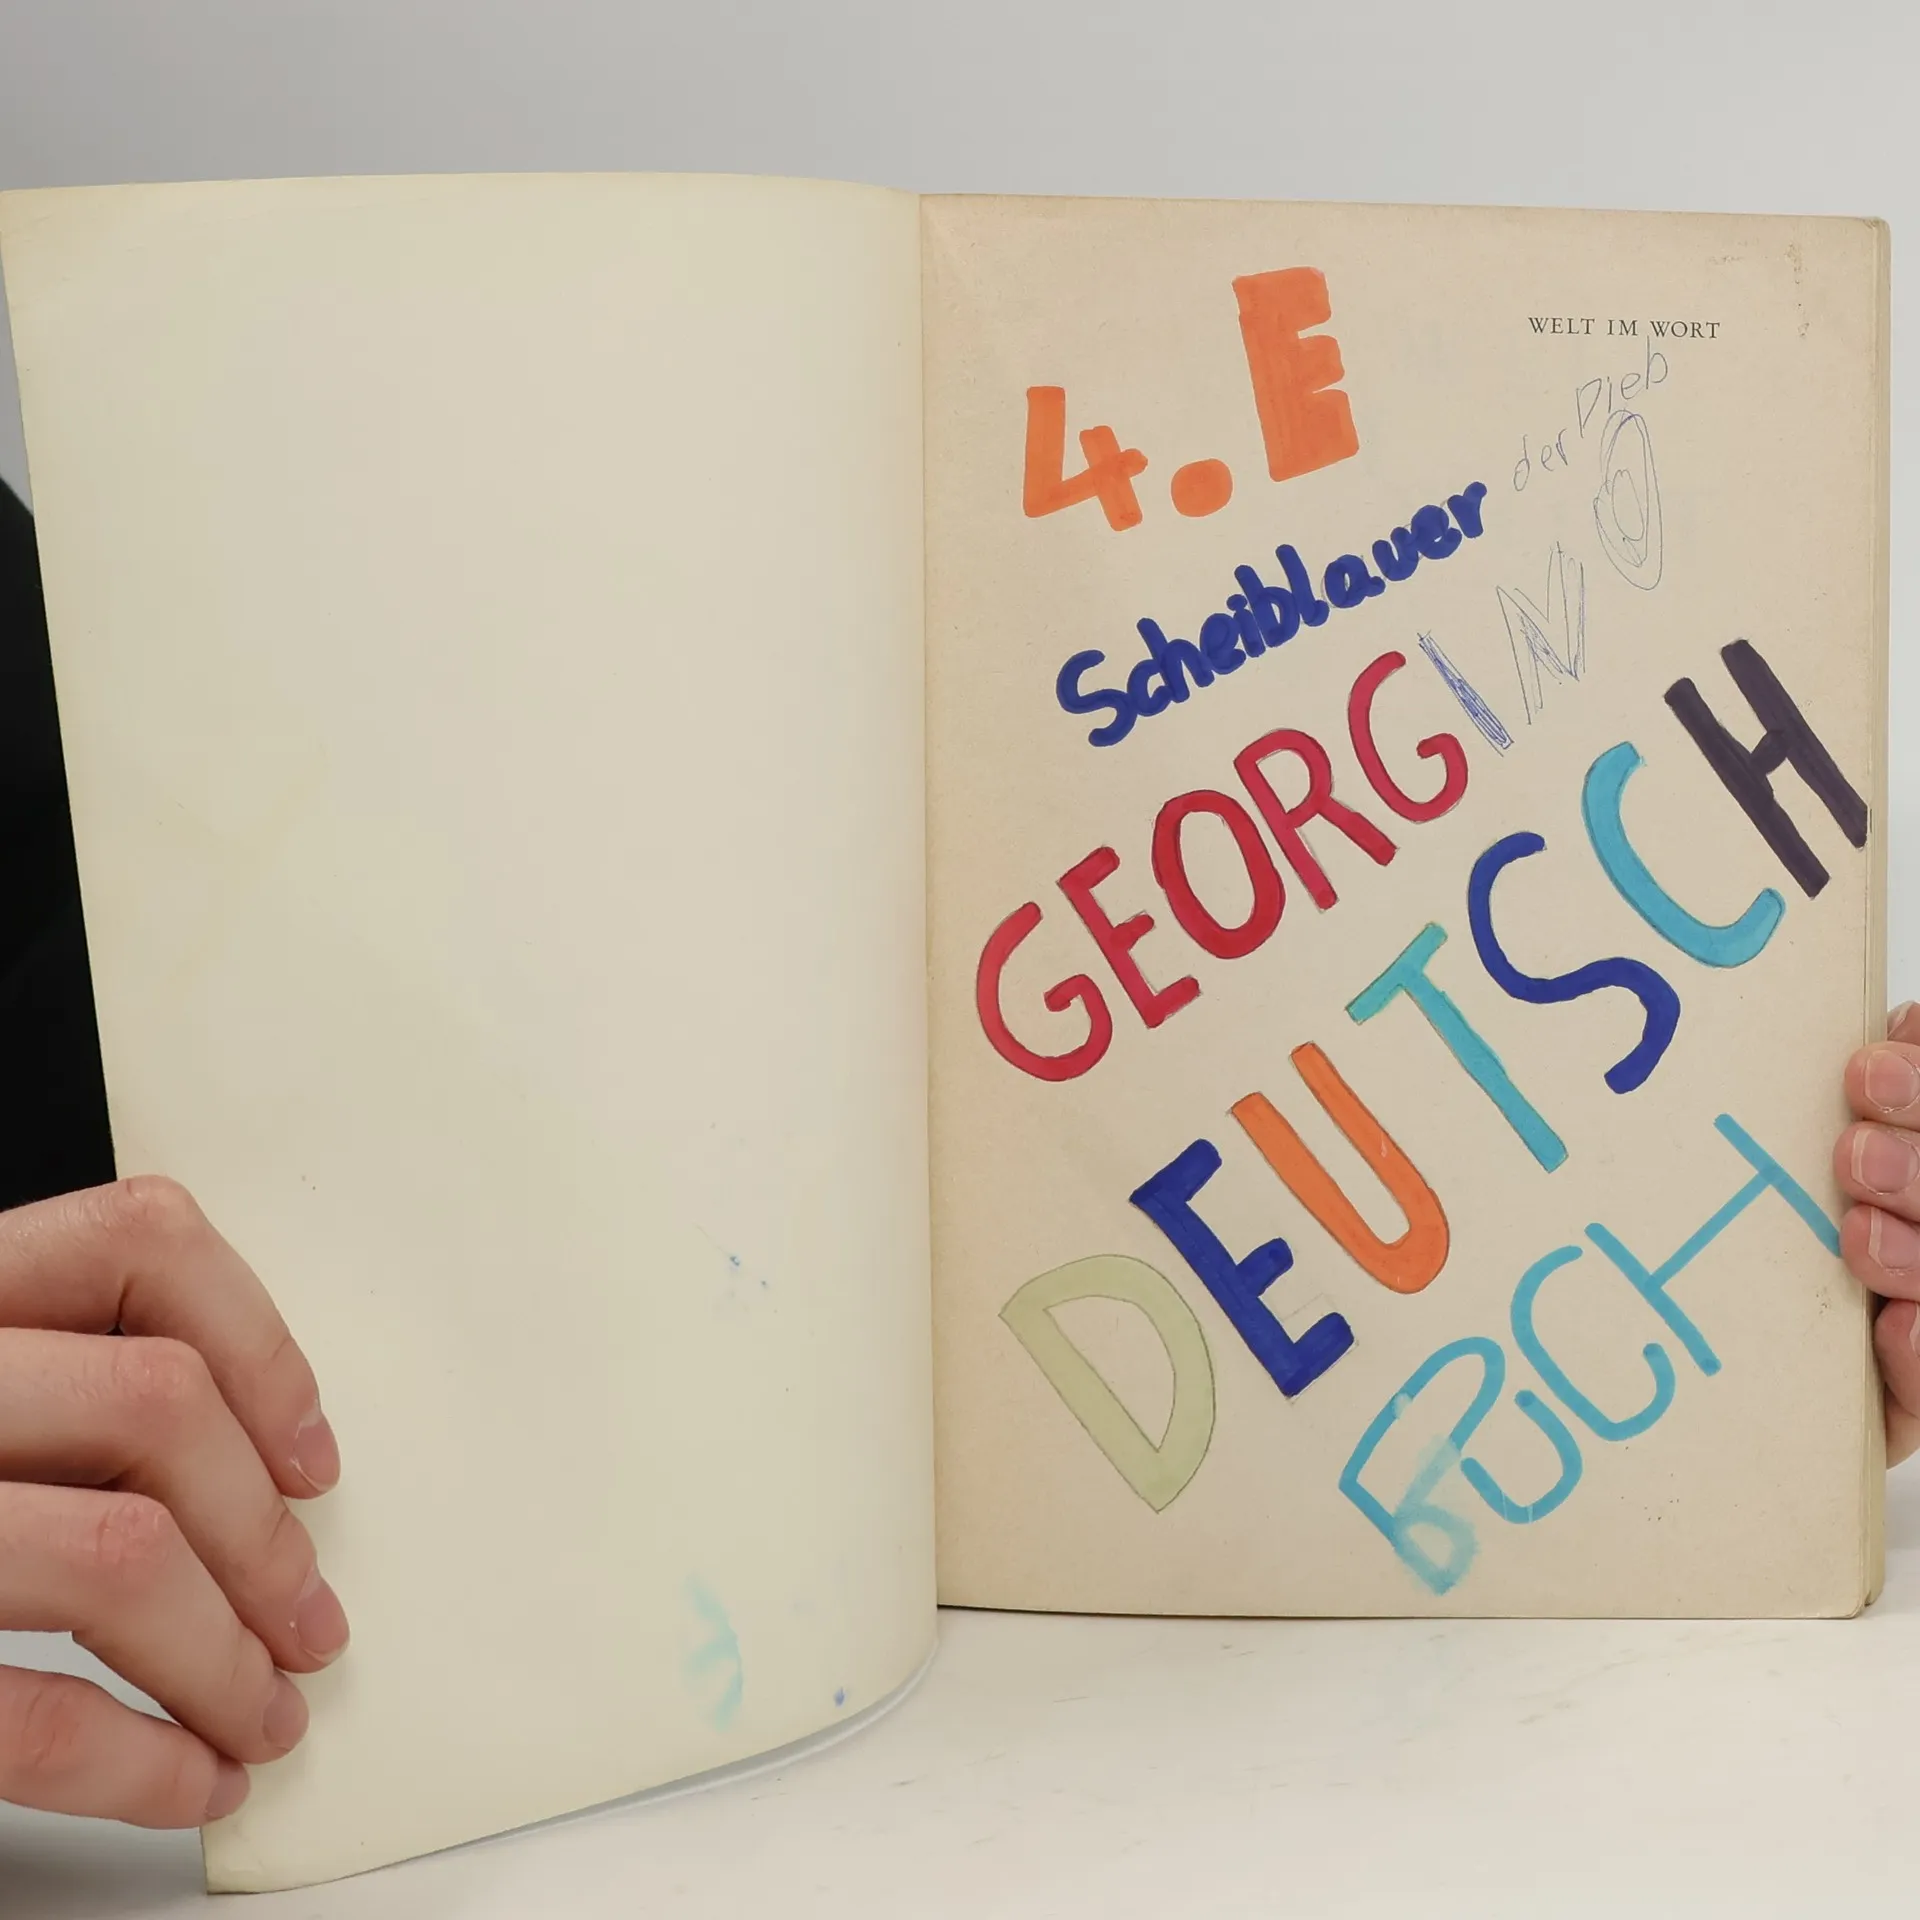 WELT IM WORT
4. E
Scheiblauer der Dieb
GEORGINO
DEUTSCH
BUCH